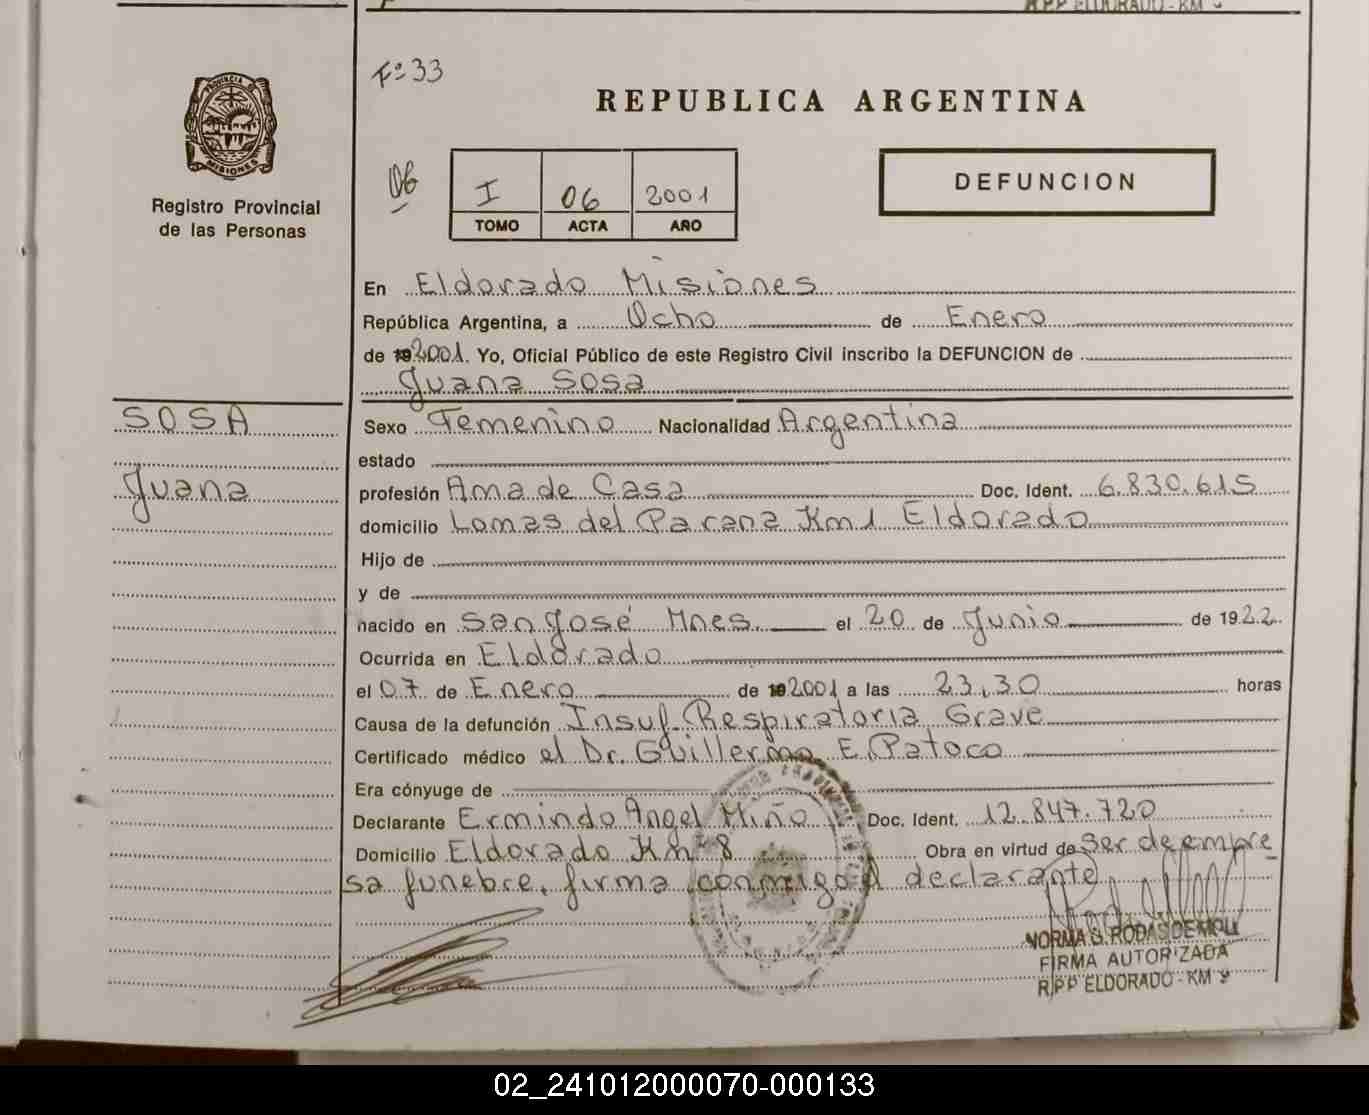 RPP ELDORADO - KM 9
Fº 33
REPUBLICA ARGENTINA
PROVINCIA DE
MISIONES
Registro Provincial
de las Personas
06
I 06 2001
TOMO ACTA AÑO
DEFUNCION
En Eldorado Misiones
República Argentina, a Ocho de Enero
de 192001. Yo, Oficial Público de este Registro Civil inscribo la DEFUNCION de
Juana Sosa
SOSA
Juana
Sexo Femenino Nacionalidad Argentina
estado
profesión Ama de Casa Doc. Ident. 6.830.615
domicilio Lomas del Parana Km 1 Eldorado
Hijo de
y de
nacido en San José Mnes. el 20 de Junio de 1922
Ocurrida en Eldorado
el 07 de Enero de 192001 a las 23,30 horas
Causa de la defunción Insuf. Respiratoria Grave
Certificado médico el Dr. Guillermo E. Patoco
Era cónyuge de
Declarante Ermindo Angel Miño Doc. Ident. 12.847.720
Domicilio Eldorado Km 8 Obra en virtud de ser de empre
sa funebre, firma conmigo el declarante
NORMA G. RODAS DE MOLL
FIRMA AUTORIZADA
RPP ELDORADO - KM 9
02_241012000070-000133